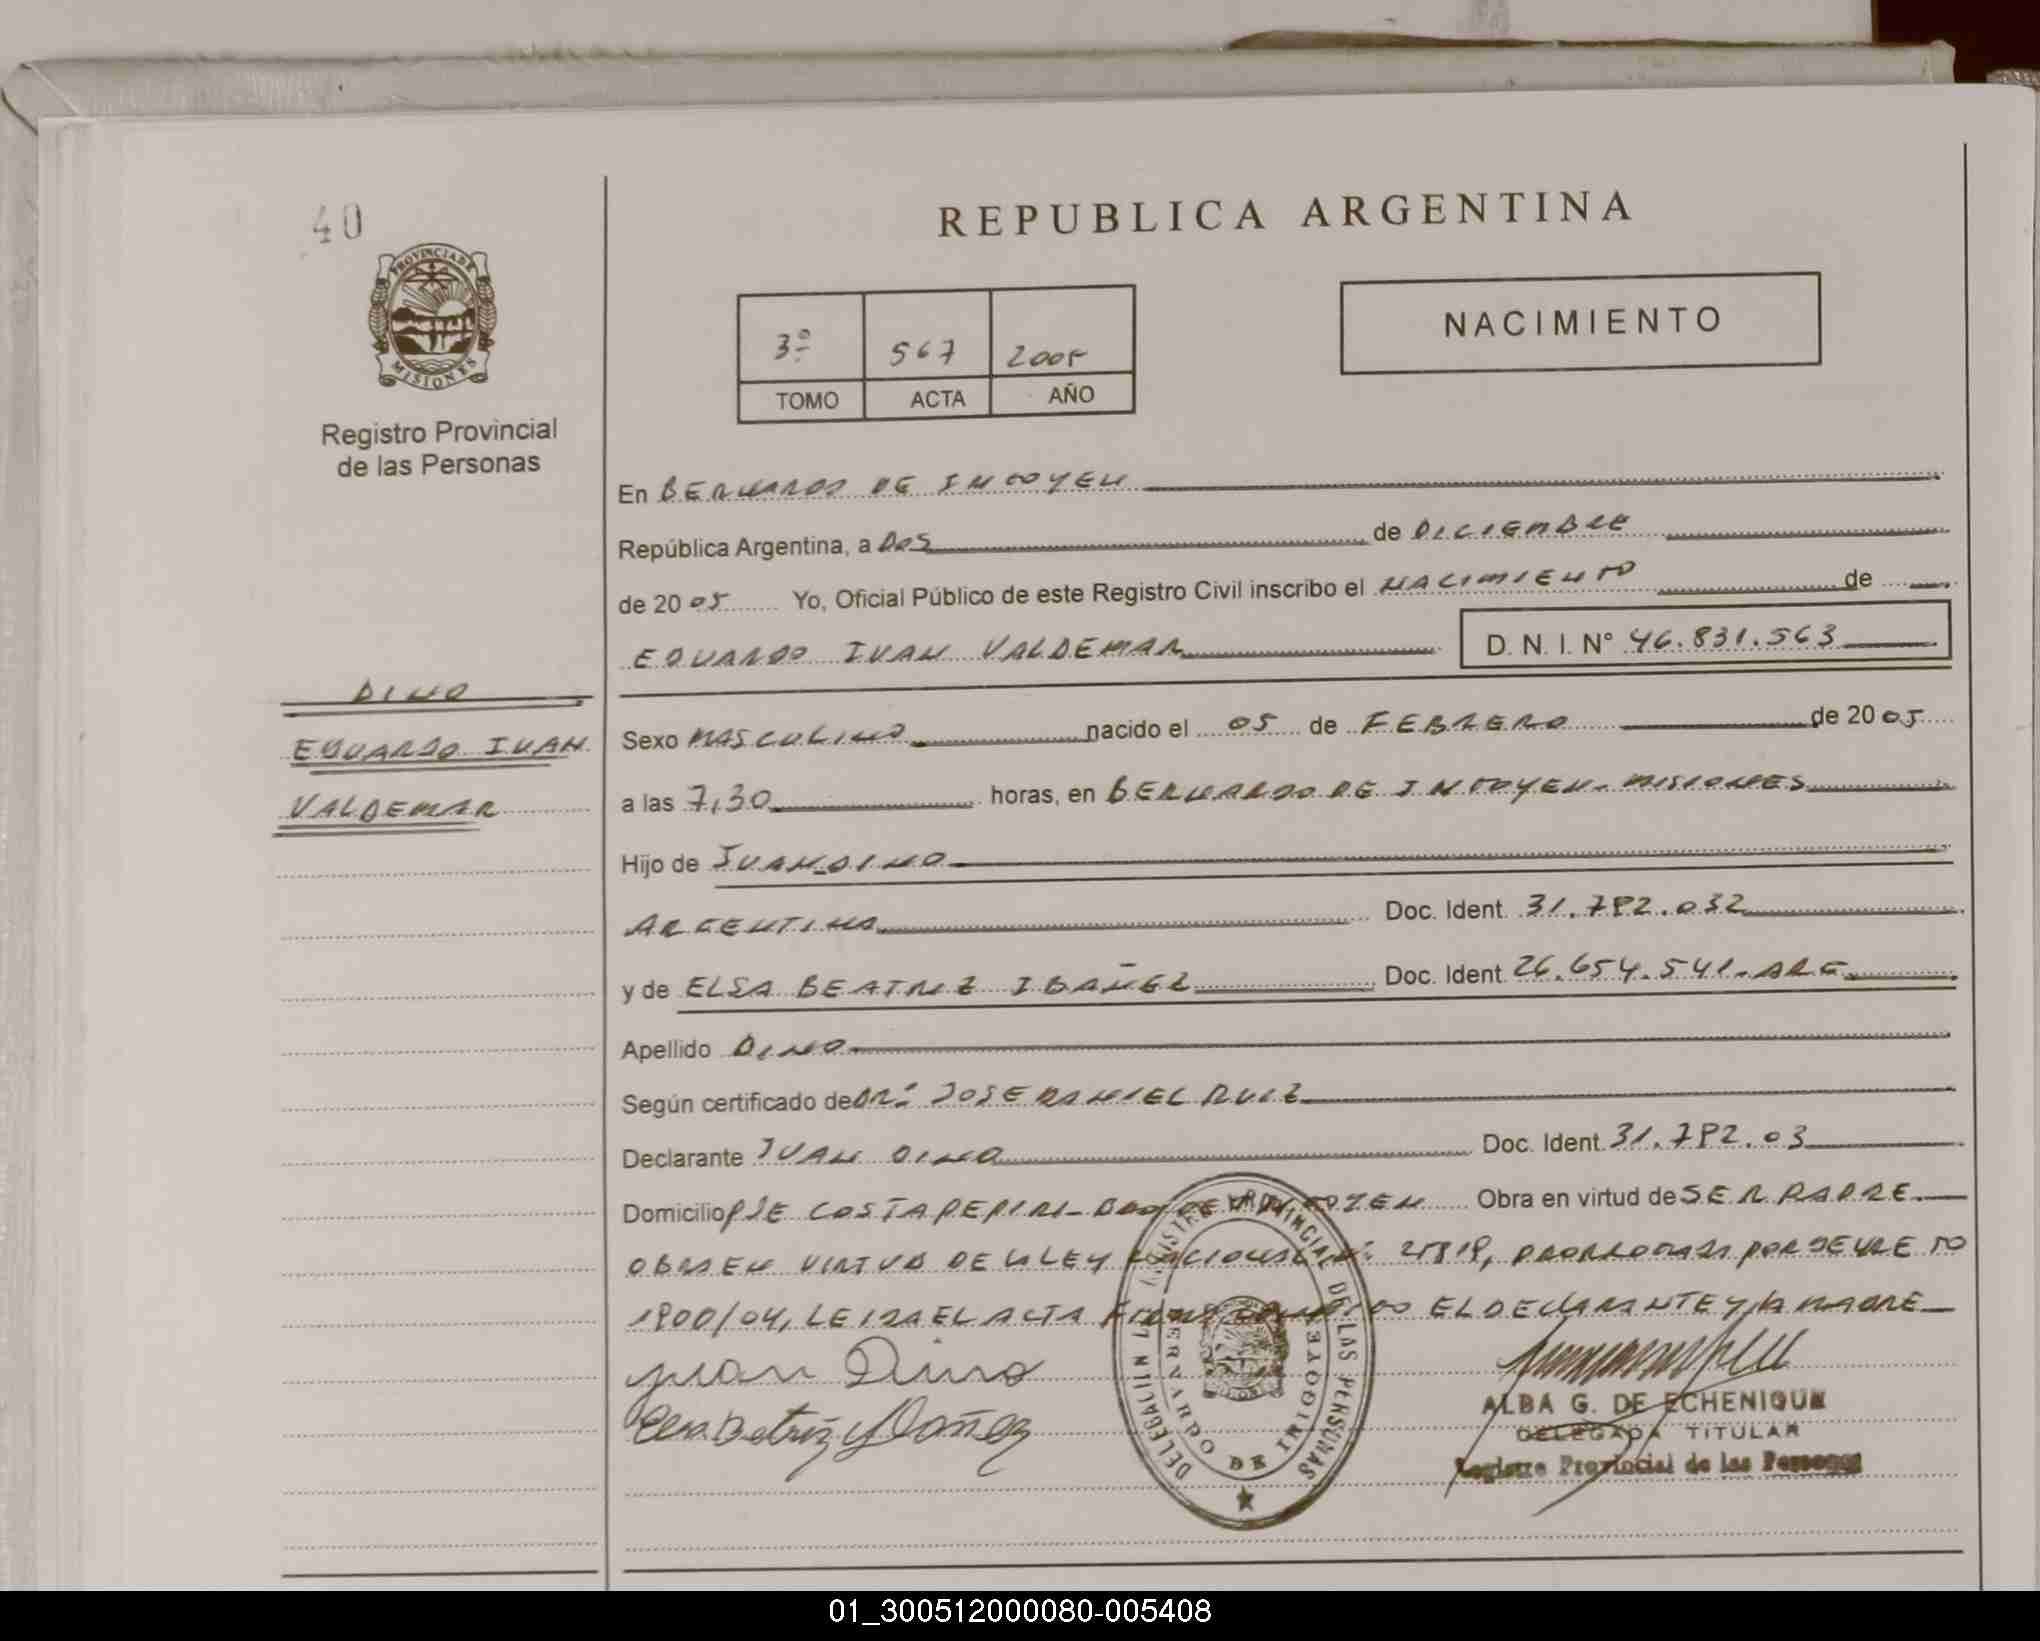 40
PROVINCIA DE
MISIONES
Registro Provincial
de las Personas
REPUBLICA ARGENTINA
3º 567 2005
TOMO ACTA AÑO
NACIMIENTO
En BERNARDO DE IRIGOYEN
República Argentina, a DOS de DICIEMBRE
de 2005 Yo, Oficial Público de este Registro Civil inscribo el NACIMIENTO de
EDUARDO IVAN VALDEMAR D. N. I. N° 46.831.563
DINO
EDUARDO IVAN
VALDEMAR
Sexo MASCULINO nacido el 05 de FEBRERO de 2005
a las 7,30 horas, en BERNARDO DE IRIGOYEN - MISIONES
Hijo de JUAN DINO
ARGENTINA Doc. Ident. 31.792.032
y de ELSA BEATRIZ IBAÑEZ Doc. Ident. 26.654.541 - ARG
Apellido DINO
Según certificado de DR. JOSE DANIEL RUIZ
Declarante JUAN DINO Doc. Ident. 31.792.03
Domicilio PJE COSTA PEPIRI - BDO DE IRIGOYEN Obra en virtud de SER PADRE.
OBRA EN VIRTUD DE LA LEY NACIONAL Nº 25819, PRORROGADA POR DECRETO
1900/04, LEIDA EL ACTA FIRMAN EL DECLARANTE Y LA MADRE
Juan Dino
Elsa Beatriz Ibañez
REGISTRO PROVINCIAL DE LAS PERSONAS
BERNARDO DE IRIGOYEN
ALBA G. DE ECHENIQUE
DELEGADA TITULAR
Registro Provincial de las Personas
01_300512000080-005408